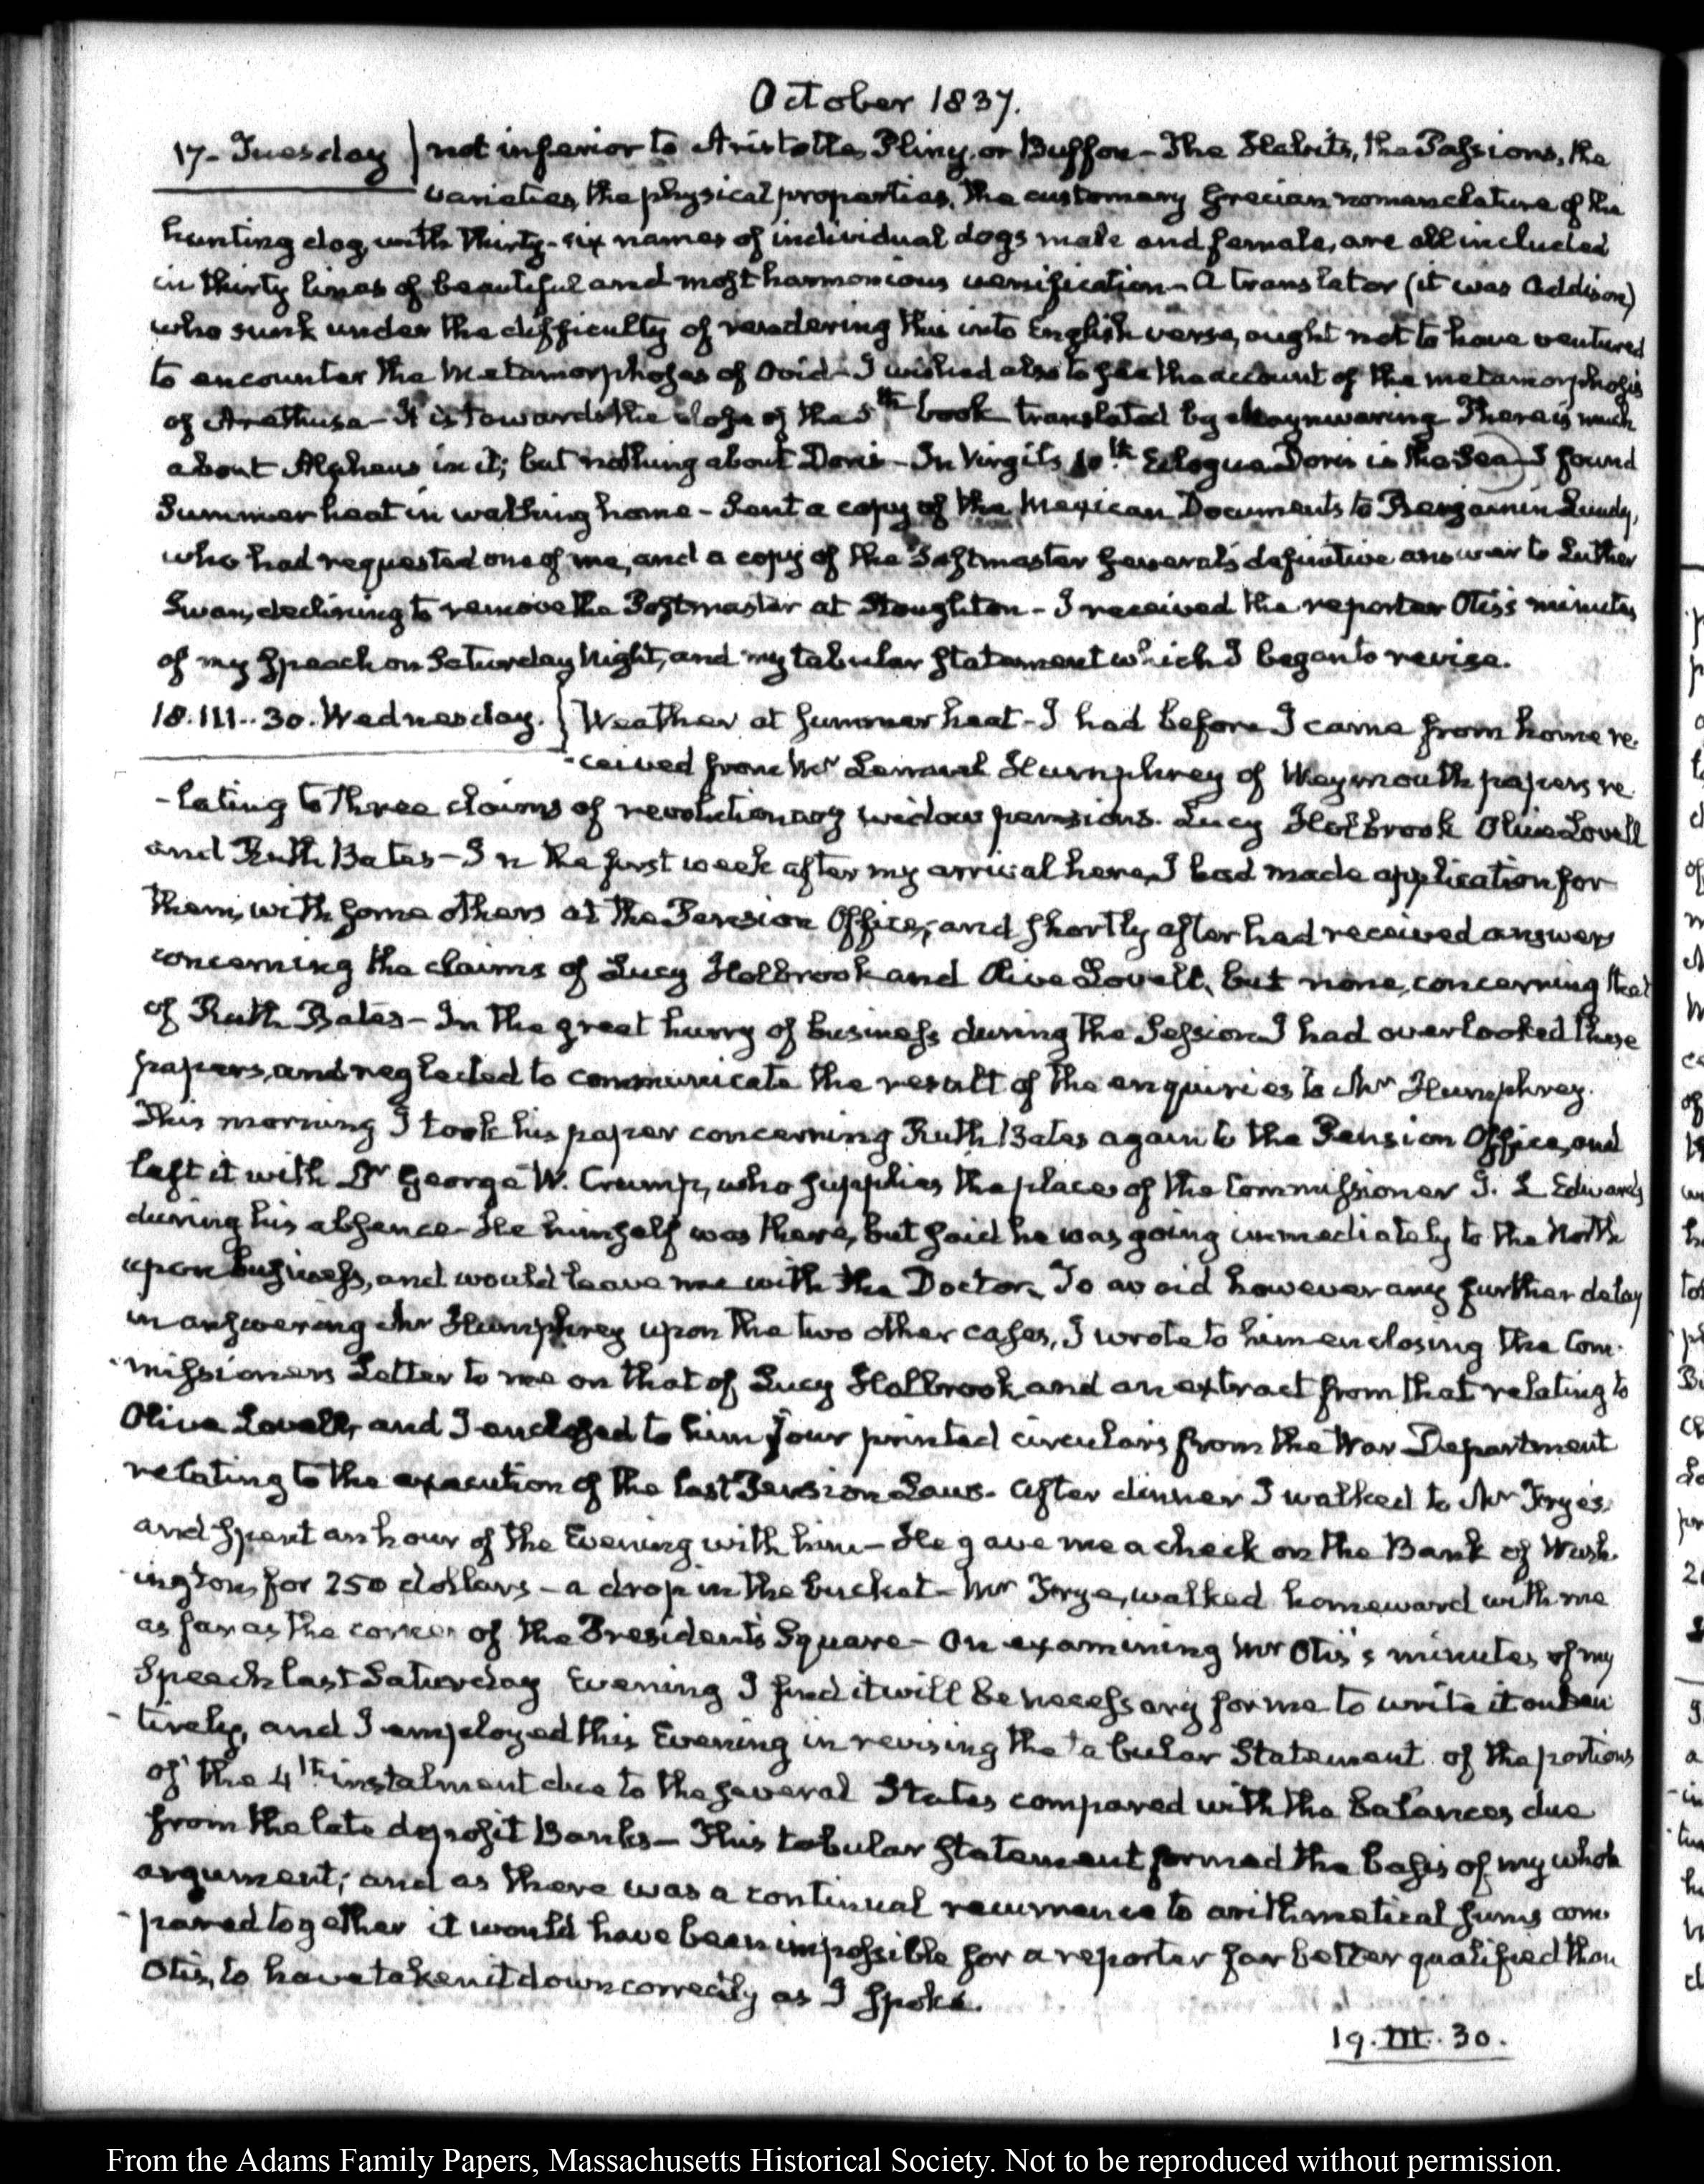 October 1837.
17. Tuesday } not inferior to Aristotle, Pliny, or Buffon – The Habits, the Passions, the
varieties, the physical properties, the customary Grecian nomenclature of the
hunting dog, with thirty-six names of individual dogs male and female, are all included
in thirty lines of beautiful and most harmonious versification – A translator (it was Addison)
who sunk under the difficulty of rendering this into English verse, ought not to have ventured
to encounter the Metamorphoses of Ovid – I wished also to see the account of the metamorphosis
of Arethusa – It is towards the close of the 5th book translated by Maynwaring There is much
about Alpheus in it; but nothing about Doris – In Virgil's 10th Eclogue Doris is the Sea – I found
Summer heat in walking home – Sent a copy of the Mexican Documents to Benjamin Lundy,
who had requested one of me, and a copy of the Postmaster General's definitive answer to Luther
Swan, declining to remove the Postmaster at Stoughton – I received the reporter Otis's minutes
of my Speech on Saturday Night, and my tabular statement which I began to revise.
18. III.. 30. Wednesday. } Weather at summer heat – I had before I came from home re-
-ceived from Mr Lemuel Humphrey of Weymouth papers re
-lating to three claims of revolutionary widow pensions. Lucy Holbrook Olive Lovell
and Ruth Bates – In the first week after my arrival here, I had made application for
them, with some others at the Pension Office; and shortly after had received answers
concerning the claims of Lucy Holbrook and Olive Lovell, but none, concerning that
of Ruth Bates – In the great hurry of business during the Session I had overlooked these
papers, and neglected to communicate the result of the enquiries to Mr Humphrey.
This morning I took his paper concerning Ruth Bates again to the Pension Office, and
left it with Dr George W. Crump, who supplies the place of the Commissioner J. L Edwards
during his absence – He himself was there, but said he was going immediately to the North
upon business, and would leave me with the Doctor. To avoid however any further delay
in answering Mr Humphrey upon the two other cases, I wrote to him enclosing the Com-
-missioners Letter to me on that of Lucy Holbrook, and an extract from that relating to
Olive Lovell, and I enclosed to him four printed circulars from the War Department
relating to the execution of the last Pension Laws. After dinner I walked to Mr Frye's,
and spent an hour of the Evening with him – He gave me a check on the Bank of Wash-
-ington, for 250 dollars – a drop in the bucket – Mr Frye, walked homeward with me
as far as the corner of the President's Square – On examining Mr Otis's minutes of my
Speech last Saturday Evening I find it will be necessary for me to write it out en
-tirely, and I employed this Evening in revising the tabular Statement of the portions
of the 4th instalment due to the several States compared with the balances due
from the late deposit Banks – This tabular statement formed the basis of my whole
argument; and as there was a continual recurrence to arithmetical sums com-
-pared together it would have been impossible for a reporter far better qualified than
Otis, to have taken it down correctly as I spoke.
19. III. 30.
From the Adams Family Papers, Massachusetts Historical Society. Not to be reproduced without permission.